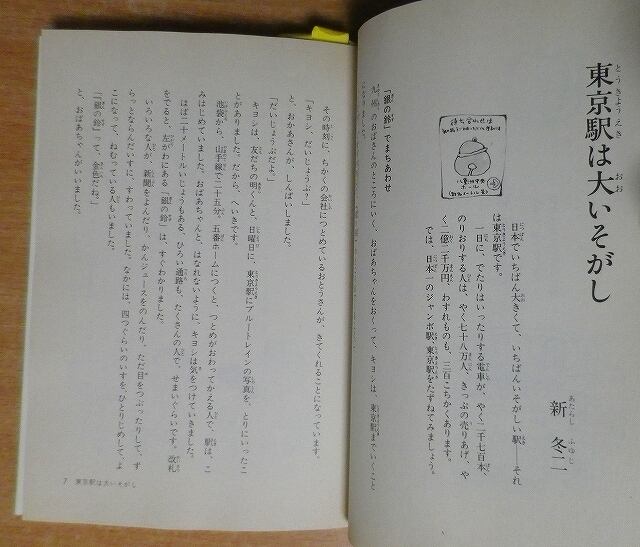 東京駅は大いそがし
とうきょうえき
おお
新 冬二
あたらし ふゆじ
日本でいちばん大きくて、いちばんいそがしい駅――それ
は東京駅です。
一日に、でたりはいったりする電車が、やく二千七百本、
のりおりする人は、やく七十八万人、きっぷの売りあげ、や
く二億二千万円、わすれものも、三百こちかくあります。
では、日本一のジャンボ駅、東京駅をたずねてみましょう。
「銀の鈴」でまちあわせ
九州のおばさんのところにいく、おばあちゃんをおくって、キヨシは、東京駅までいくこと
になりました。
その時刻に、ちかくの会社につとめているおとうさんが、きてくれることになっています。
「キヨシ、だいじょうぶ?」
と、おかあさんが、しんぱいしました。
「だいじょうぶだよ。」
キヨシは、友だちの明くんと、日曜日に、東京駅にブルートレインの写真を、とりにいったこ
とがありました。だから、へいきです。
池袋から、山手線で二十五分。五番ホームにつくと、つとめがおわってかえる人で、駅は、こ
みはじめていました。おばあちゃんと、はなれないように、キヨシは気をつけていきました。
はば二十メートルいじょうもある、ひろい通路も、たくさんの人で、せまいぐらいです。改札
をでると、左がわにある「銀の鈴」は、すぐわかりました。
いろいろな人が、新聞をよんだり、かんジュースをのんだり、ただ目をつぶったりして、ず
らっとならんだいすに、すわっていました。なかには、四つぐらいのいすを、ひとりじめして、よ
こになって、ねむっている人もいました。
「『銀の鈴』って、金色だね。」
と、おばあちゃんがいいました。
7 東京駅は大いそがし